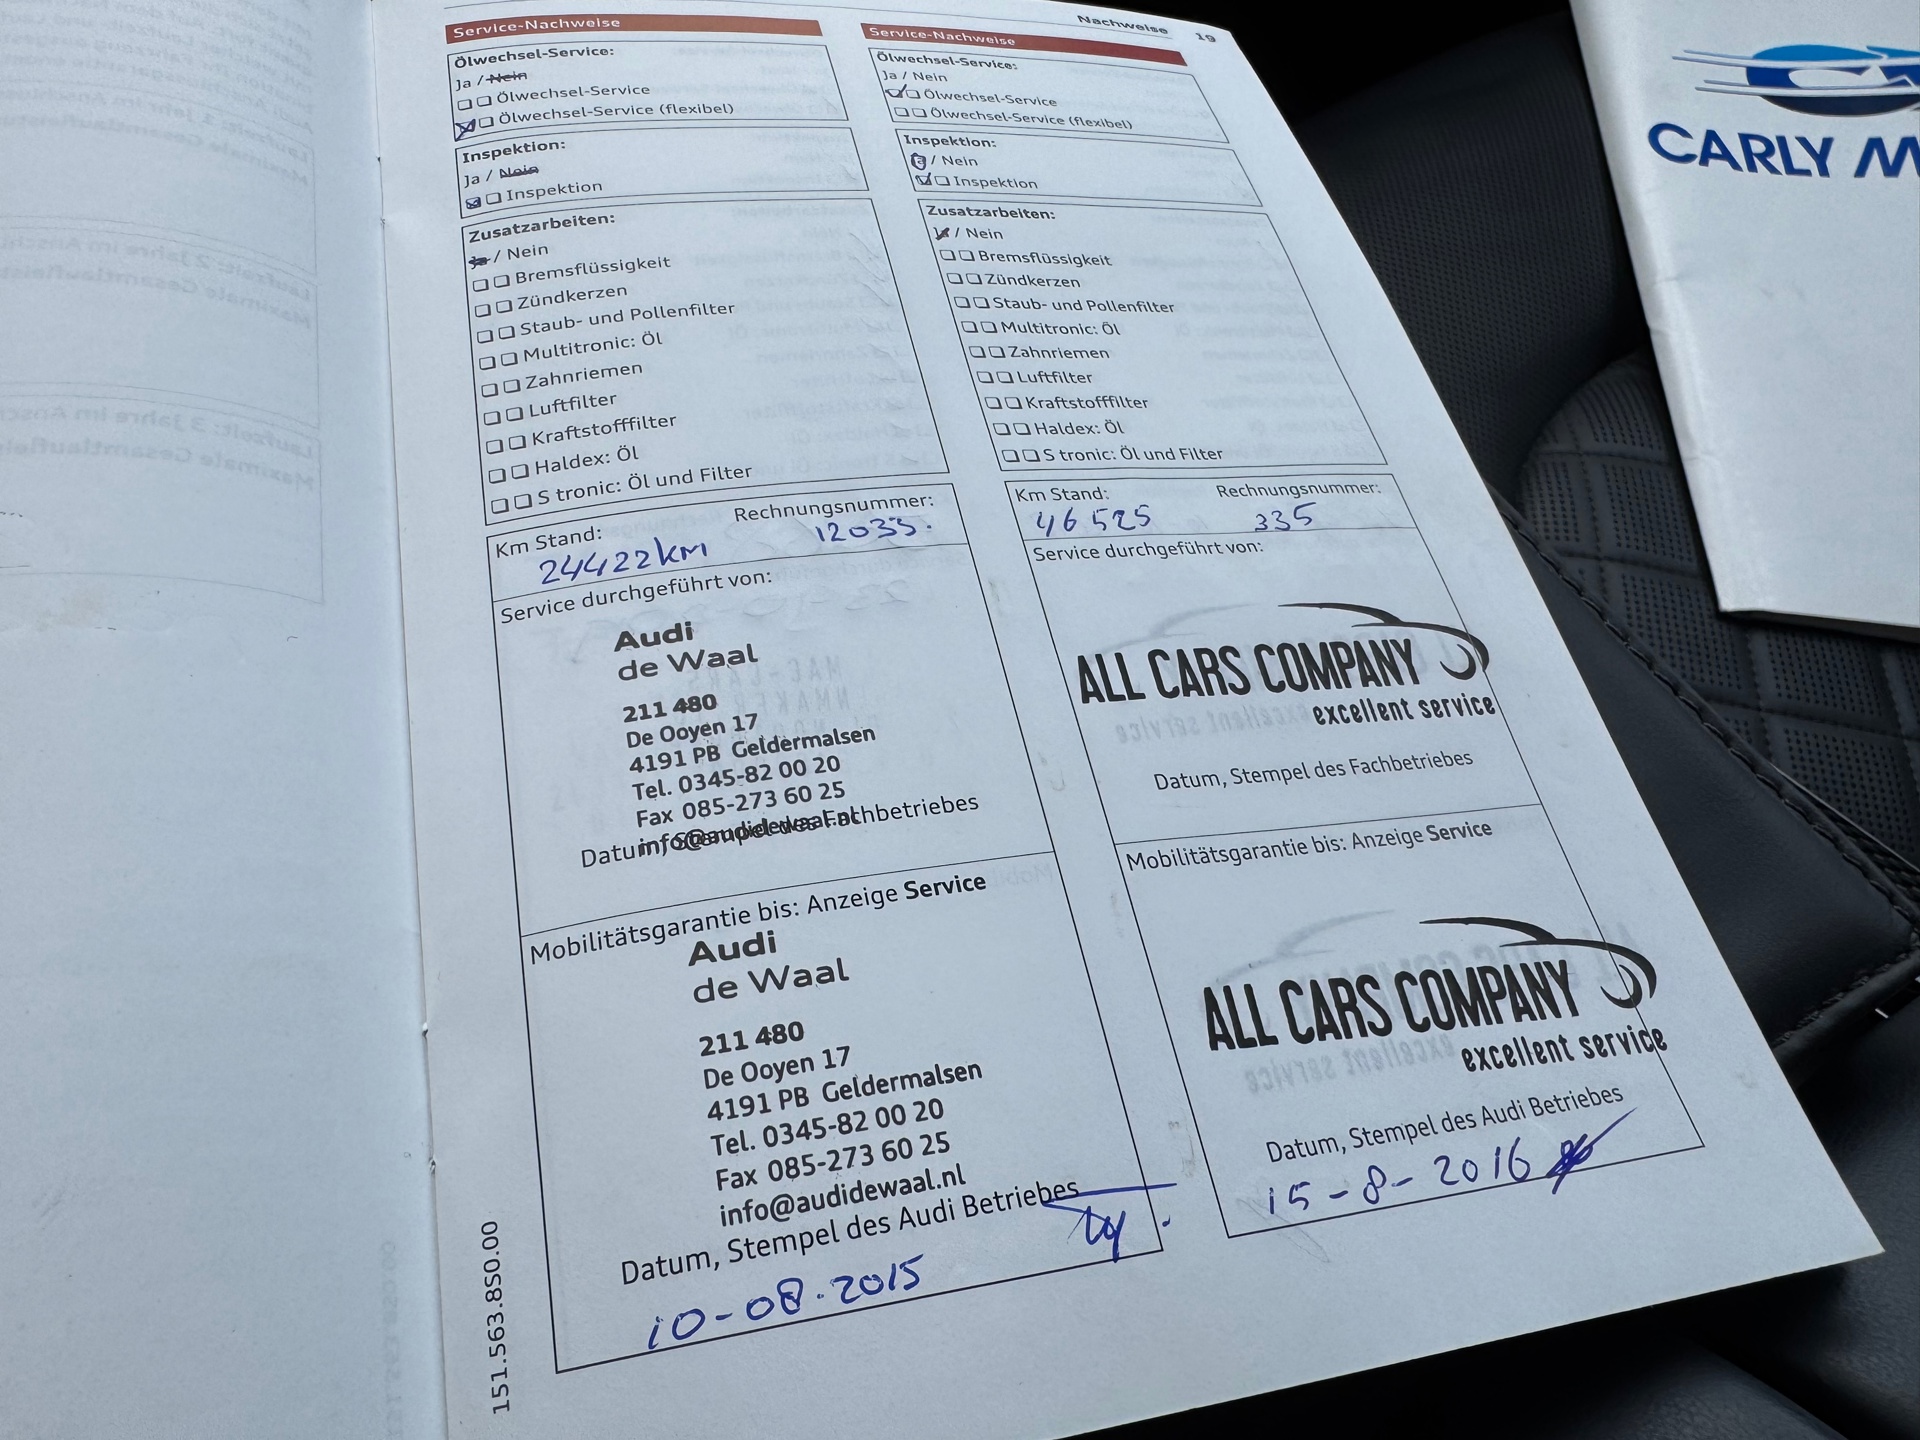 Nachweise 19
Service-Nachweise
Ölwechsel-Service:
Ja / Nein
Ölwechsel-Service
Ölwechsel-Service (flexibel)
Inspektion:
Ja / Nein
Inspektion
Zusatzarbeiten:
Ja / Nein
Bremsflüssigkeit
Zündkerzen
Staub- und Pollenfilter
Multitronic: Öl
Zahnriemen
Luftfilter
Kraftstofffilter
Haldex: Öl
S tronic: Öl und Filter
Km Stand: Rechnungsnummer:
24422 km 12033.
Service durchgeführt von:
Audi
de Waal
211 480
De Ooyen 17
4191 PB Geldermalsen
Tel. 0345-82 00 20
Fax 085-273 60 25
info@audidewaal.nl
Datum, Stempel des Fachbetriebes
Mobilitätsgarantie bis: Anzeige Service
Audi
de Waal
211 480
De Ooyen 17
4191 PB Geldermalsen
Tel. 0345-82 00 20
Fax 085-273 60 25
info@audidewaal.nl
Datum, Stempel des Audi Betriebes
10-08.2015
151.563.8S0.00
Service-Nachweise
Ölwechsel-Service:
Ja / Nein
Ölwechsel-Service
Ölwechsel-Service (flexibel)
Inspektion:
/ Nein
Inspektion
Zusatzarbeiten:
Ja / Nein
Bremsflüssigkeit
Zündkerzen
Staub- und Pollenfilter
Multitronic: Öl
Zahnriemen
Luftfilter
Kraftstofffilter
Haldex: Öl
S tronic: Öl und Filter
Km Stand: Rechnungsnummer:
46 525 335
Service durchgeführt von:
ALL CARS COMPANY
excellent service
Datum, Stempel des Fachbetriebes
Mobilitätsgarantie bis: Anzeige Service
ALL CARS COMPANY
excellent service
Datum, Stempel des Audi Betriebes
15-8-2016
CARLY